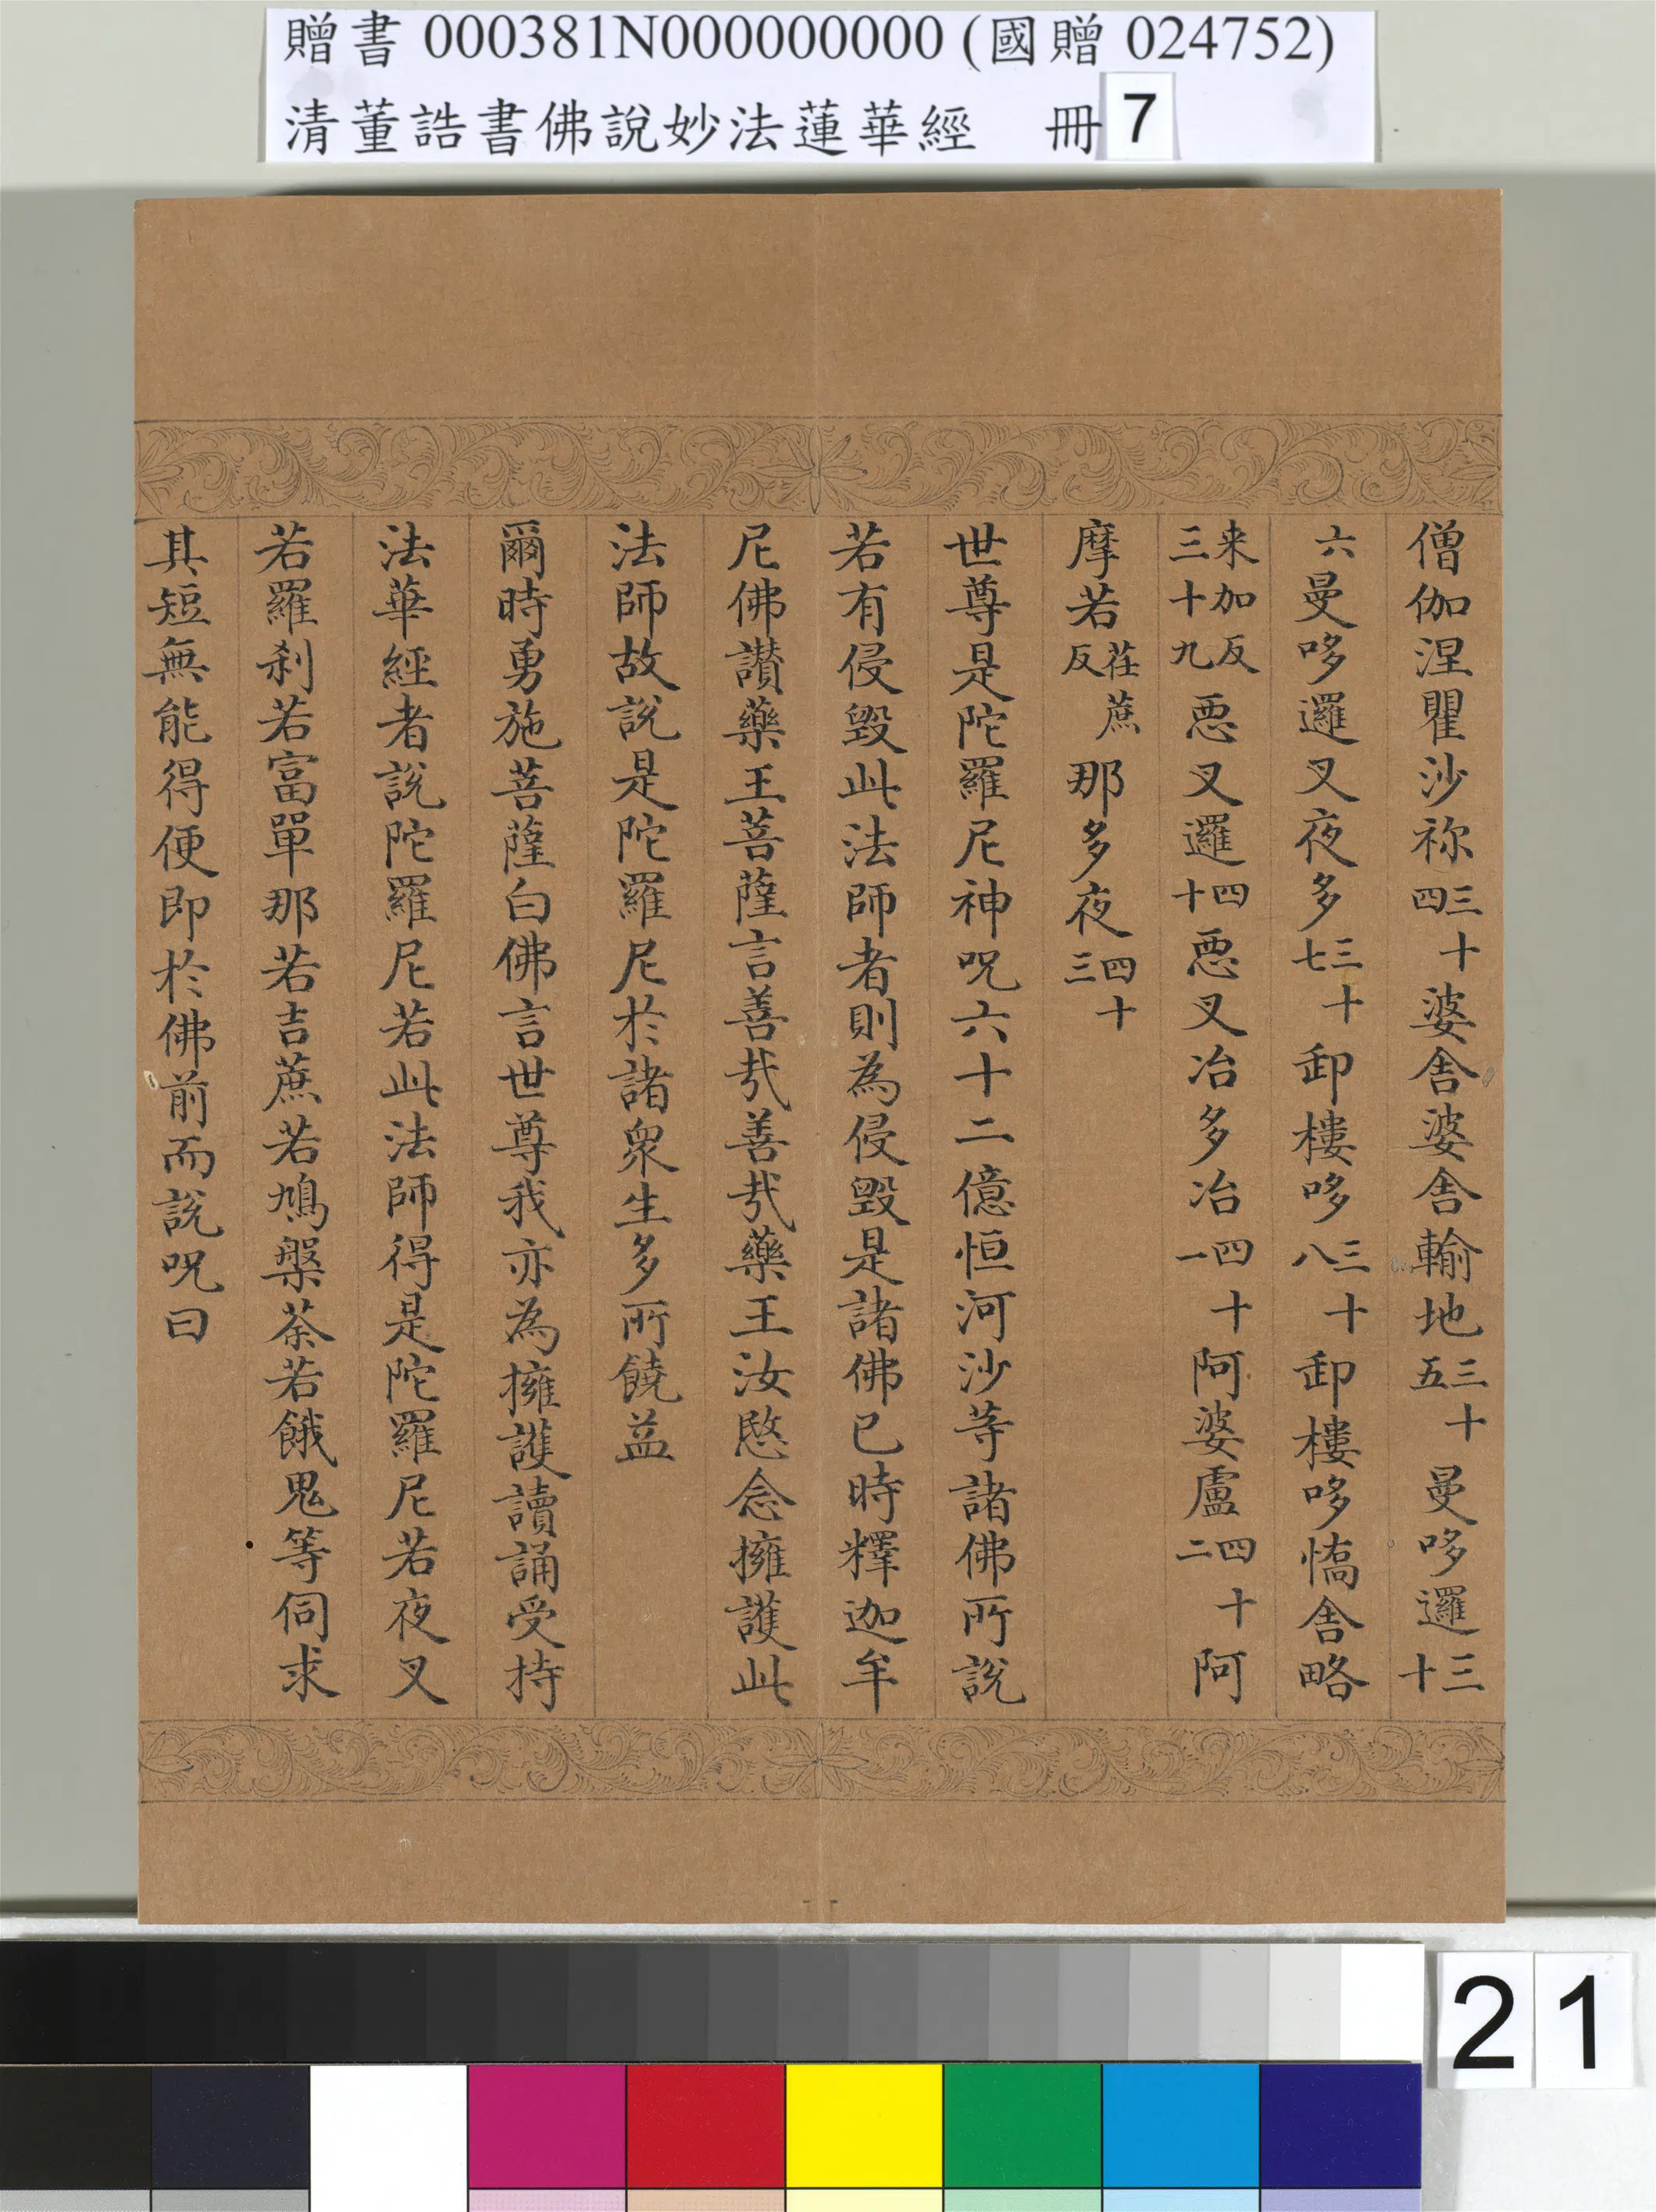 贈書 000381N000000000 (國贈 024752)
清董誥書佛說妙法蓮華經 冊 7
僧伽涅瞿沙祢三十四婆舍婆舍輸地三十五曼哆邏三十
六曼哆邏叉夜多三十七卸樓哆三十八卸樓哆憍舍略
来加反三十九惡叉邏四十惡叉冶多冶四十一阿婆盧四十二阿
摩若荏蔗反那多夜四十三
世尊是陀羅尼神呪六十二億恒河沙等諸佛所說
若有侵毀此法師者則為侵毀是諸佛已時釋迦牟
尼佛讃藥王菩薩言善哉善哉藥王汝愍念擁護此
法師故說是陀羅尼於諸眾生多所饒益
爾時勇施菩薩白佛言世尊我亦為擁護讀誦受持
法華經者說陀羅尼若此法師得是陀羅尼若夜叉
若羅剎若富單那若吉蔗若鳩槃荼若餓鬼等伺求
其短無能得便即於佛前而說呪曰
21